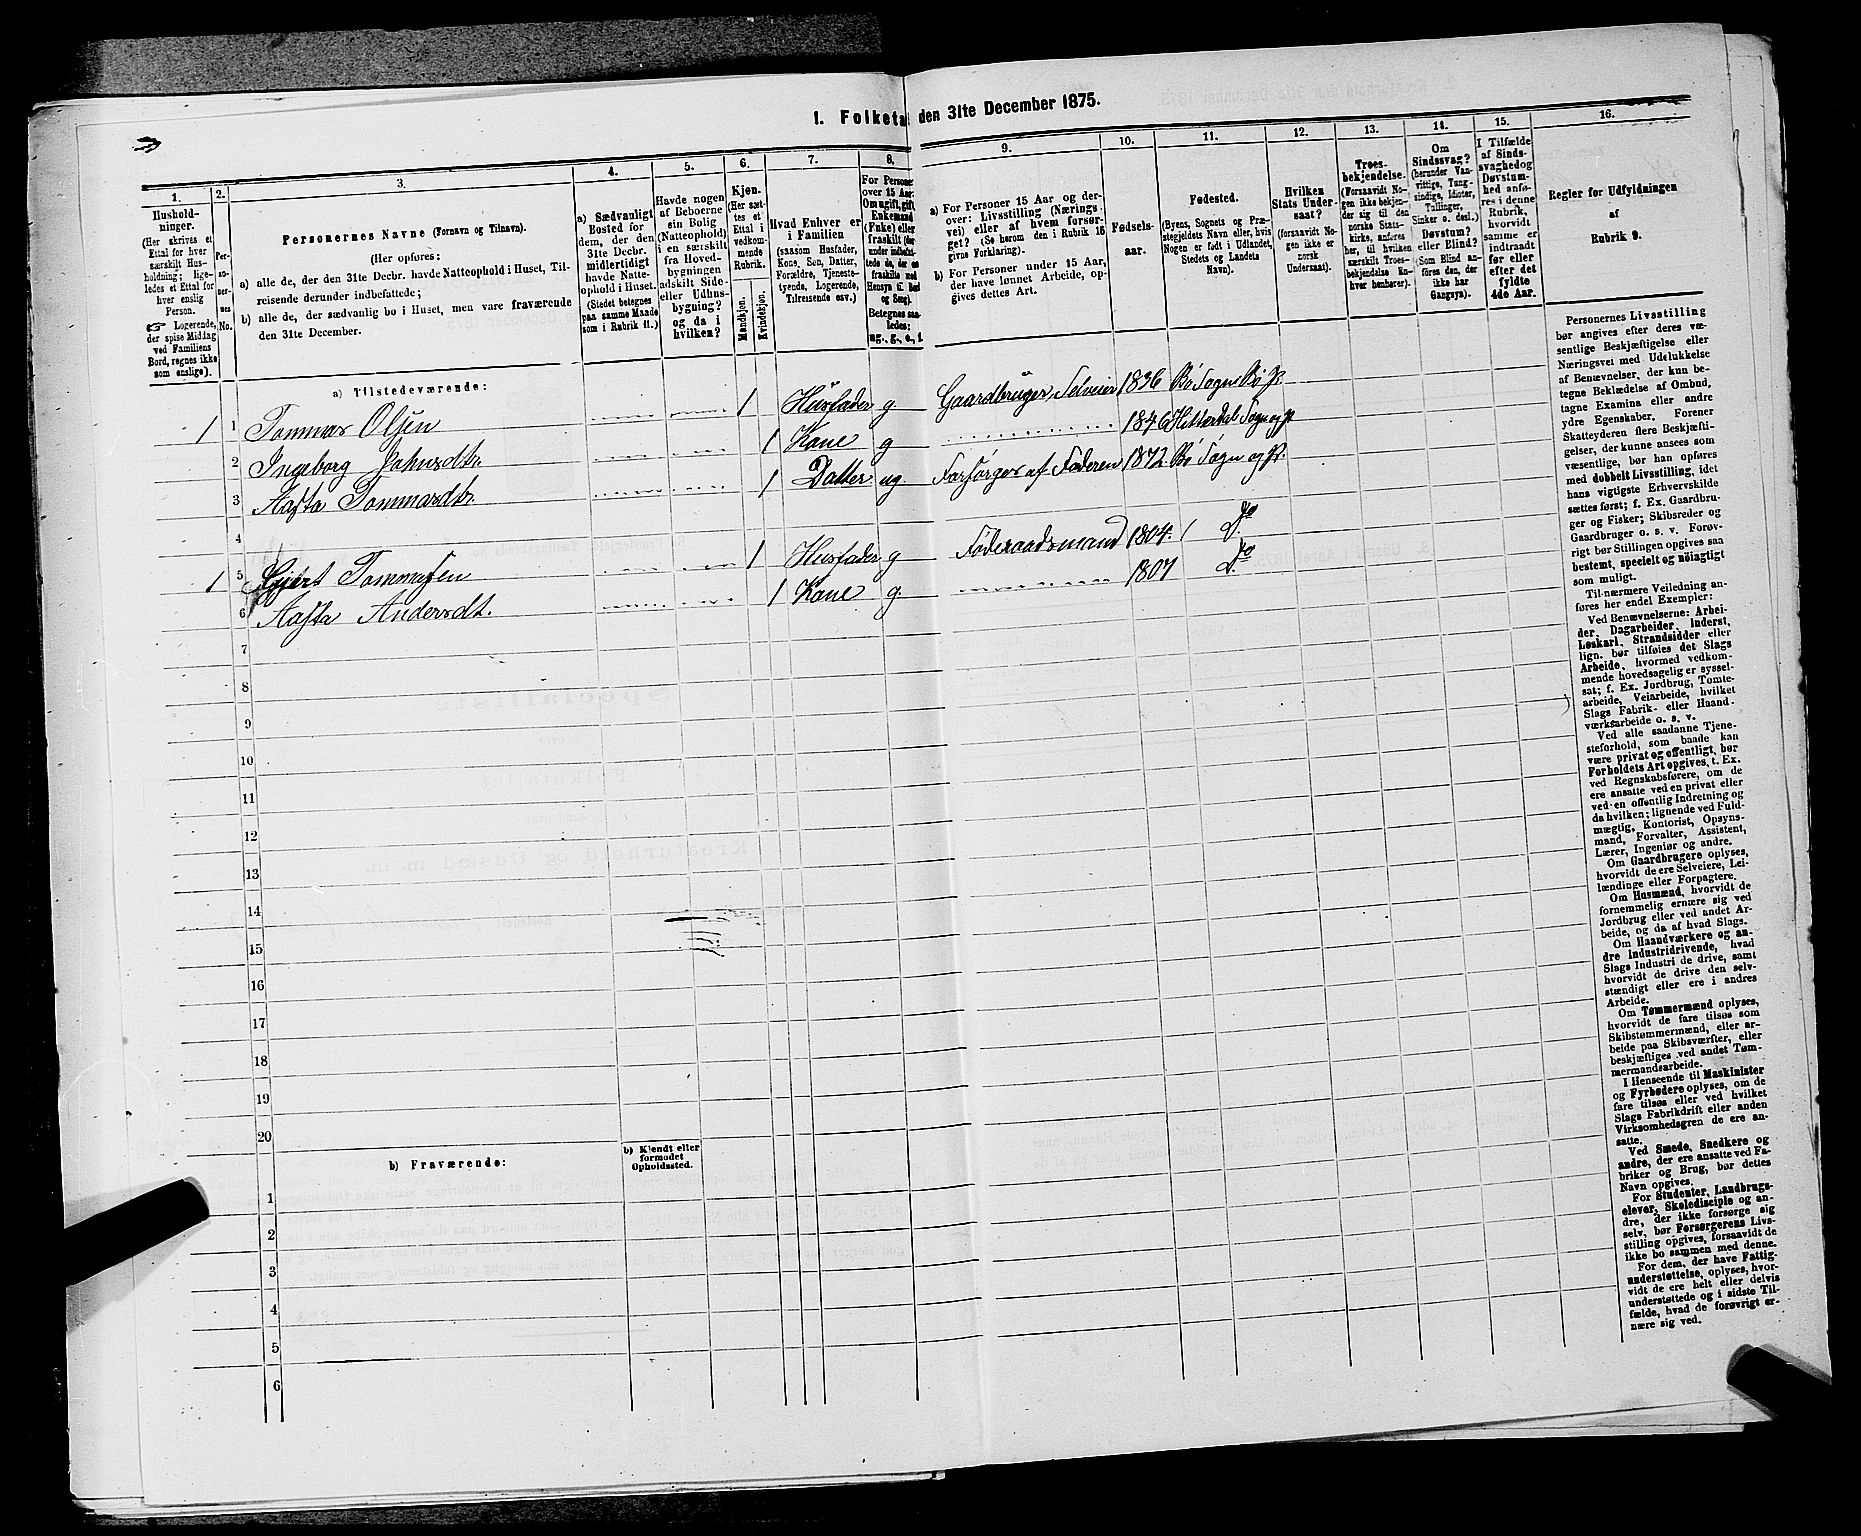 1. Folketa den 31te December 1875.
1. 2. 3. 4. 5. 6. 7. 8. 9. 10. 11. 12. 13. 14. 15. 16.
Hushold-
ninger.
(Her skrives et
Ettal for hver
særskilt Hus-
holdning; lige-
ledes et Ettal for
hver enslig
Person.
☞ Logerende,
der spise Middag
ved Familiens
Bord, regnes ikke
som enslige).
Per-
so-
ner-
nes
No.
Personernes Navne (Fornavn og Tilnavn).
(Her opføres:
a) alle de, der den 31te Decbr. havde Natteophold i Huset, Til-
reisende derunder indbefattede;
b) alle de, der sædvanlig bo i Huset, men vare fraværende
den 31te December.
a) Sædvanligt
Bosted for
dem, der den
31te Decbr.
midlertidigt
havde Natte-
ophold i Huset.
(Stedet betegnes
paa samme Maade
som i Rubrik 11.)
Havde nogen
af Beboerne
sin Bolig
(Natteophold)
i en særskilt
fra Hoved-
bygningen
adskilt Side-
eller Udhus-
bygning?
og da i
hvilken?
Kjøn.
(Her sæt-
tes et
Ettal i
vedkom-
mende
Rubrik.
Mandkjøn.
Kvindekjøn.
Hvad Enhver er
i Familien
(saasom Husfader,
Kone, Søn, Datter,
Forældre, Tjeneste-
tyende, Logerende,
Tilreisende osv.)
For Personer
over 15 Aar:
Om ugift, gift,
Enkemand
(Enke) eller
fraskilt (der-
under indbefat-
tede de, der ere
fraskilte med
Hensyn til Bord
og Seng).
Betegnes saa-
ledes:
ug., g., e., f.
a) For Personer 15 Aar og der-
over: Livsstilling (Nærings-
vei) eller af hvem forsør-
get? (Se herom den i Rubrik 16
givne Forklaring).
b) For Personer under 15 Aar,
der have lønnet Arbeide, op-
gives dettes Art.
Fødsels-
aar.
Fødested.
(Byens, Sognets og Præ-
stegjeldets Navn eller, hvis
Nogen er født i Udlandet,
Stedets og Landets
Navn).
Hvilken
Stats Under-
saat?
(forsaavidt No-
gen ikke er
norsk
Undersaat).
Troes-
bekjendelse.
(Forsaavidt No-
gen ikke bekjen-
der sig til den
norske Stats-
kirke, anføres
her, til hvilken
særskilt Troes-
bekjendelse En-
hver henhører).
Om
Sindssvag?
(herunder Van-
vittige, Tung-
sindige, Idioter,
Tullinger,
Sinker o. desl.)
Døvstum?
eller Blind?
(Som Blind an-
føres den, der
ikke har
Gangsyn).
I Tilfælde
af Sinds-
svaghed og
Døvstum-
hed anfø-
res i denne
Rubrik,
hvorvidt
samme er
indtraadt
før eller
efter det
fyldte
4de Aar.
Regler for Udfyldningen
af
Rubrik 9.
a) Tilstedeværende:
1 1 Tommas Olsen 1 Husfader g Gaardbruger, Selveier 1836 Bø Sogn Bø P.
2 Ingeborg Johnsdtr. 1 Kone g 1846 Hitterdal Sogn og P.
3 Aasta Tommasdtr. 1 Datter ug. Forsørges af Faderen 1872. Bø Sogn og P.
4
1 5 Gjert Tommasen 1 Husfader g Føderaadsmand 1804. Do
6 Aasta Andersdt. 1 Kone g. 1807 Do
7
8
9
10
11
12
13
14
15
16
17
18
19
20
b) Fraværende:
b) Kjendt eller
formodet
Opholdssted.
1
2
3
4
5
6
Personernes Livsstilling
bør angives efter deres væ-
sentlige Beskjæftigelse eller
Næringsvei med Udelukkelse
af Benævnelser, der kun be-
tegne Beklædelse af Ombud,
tagne Examina eller andre
ydre Egenskaber. Forener
Skatteyderen flere Beskjæfti-
gelser, der kunne ansees som
væsentlige, bør han opføres
med dobbelt Livsstilling, idet
hans vigtigste Erhvervskilde
sættes først; f. Ex. Gaardbru-
ger og Fisker; Skibsreder og
Gaardbruger o. s. v. Forøv-
rigt bør Stillingen opgives saa
bestemt, specielt og nøiagtigt
som muligt.
Til nærmere Veiledning an-
føres her endel Exempler:
Ved Benævnelserne: Arbei-
der, Dagarbeider, Inderst,
Løskarl, Strandsidder eller
lign. bør tilføies det Slags
Arbeide, hvormed vedkom-
mende hovedsagelig er syssel-
sat; f. Ex. Jordbrug, Tomte-
arbeide, Veiarbeide, hvilket
Slags Fabrik- eller Haand-
værksarbeide o. s. v.
Ved alle saadanne Tjene-
steforhold, som baade kan
være privat og offentligt, bør
Forholdets Art opgives, t. Ex.
ved Regnskabsførere, om de
ere ansatte ved en privat eller
ved en offentlig Indretning og
da hvilken; lignende ved Fuld-
mægtig, Kontorist, Opsyns-
mand, Forvalter, Assistent,
Lærer, Ingeniør og andre.
Om Gaardbrugere oplyses,
hvorvidt de ere Selveiere, Lei-
lændinge eller Forpagtere.
Om Husmænd, hvorvidt de
fornemmelig ernære sig ved
Jordbrug eller ved andet Ar-
beide, og da af hvad Slags.
Om Haandværkere og an-
dre Industridrivende, hvad
Slags Industri de drive, samt
hvorvidt de drive den selv-
stændigt eller ere i andres
Arbeide.
Om Tømmermænd oplyses,
hvorvidt de fare tilsøs som
Skibstømmermænd, eller ar-
beide paa Skibsværfter, eller
beskjæftiges ved andet Tøm-
mermandsarbeide.
I Henseende til Maskinister
og Fyrbødere oplyses, om de
fare tilsøs eller ved hvilket
Slags Fabrikdrift eller anden
Virksomhedsgren de ere an-
satte.
Ved Smede, Snedkere og
andre, der ere ansatte ved Fa-
briker og Brug, bør dettes
Navn opgives.
For Studenter, Landbrugs-
elever, Skoledisciple og an-
dre, der ikke forsørge sig
selv, bør Forsørgerens Livs-
stilling opgives, forsaavidt de
ikke bo sammen med denne.
For dem, der have Fattig-
understøttelse, oplyses, hvor-
vidt de ere helt eller delvis
understøttede og i sidste Til-
fælde, hvad de forøvrigt er-
nære sig ved.